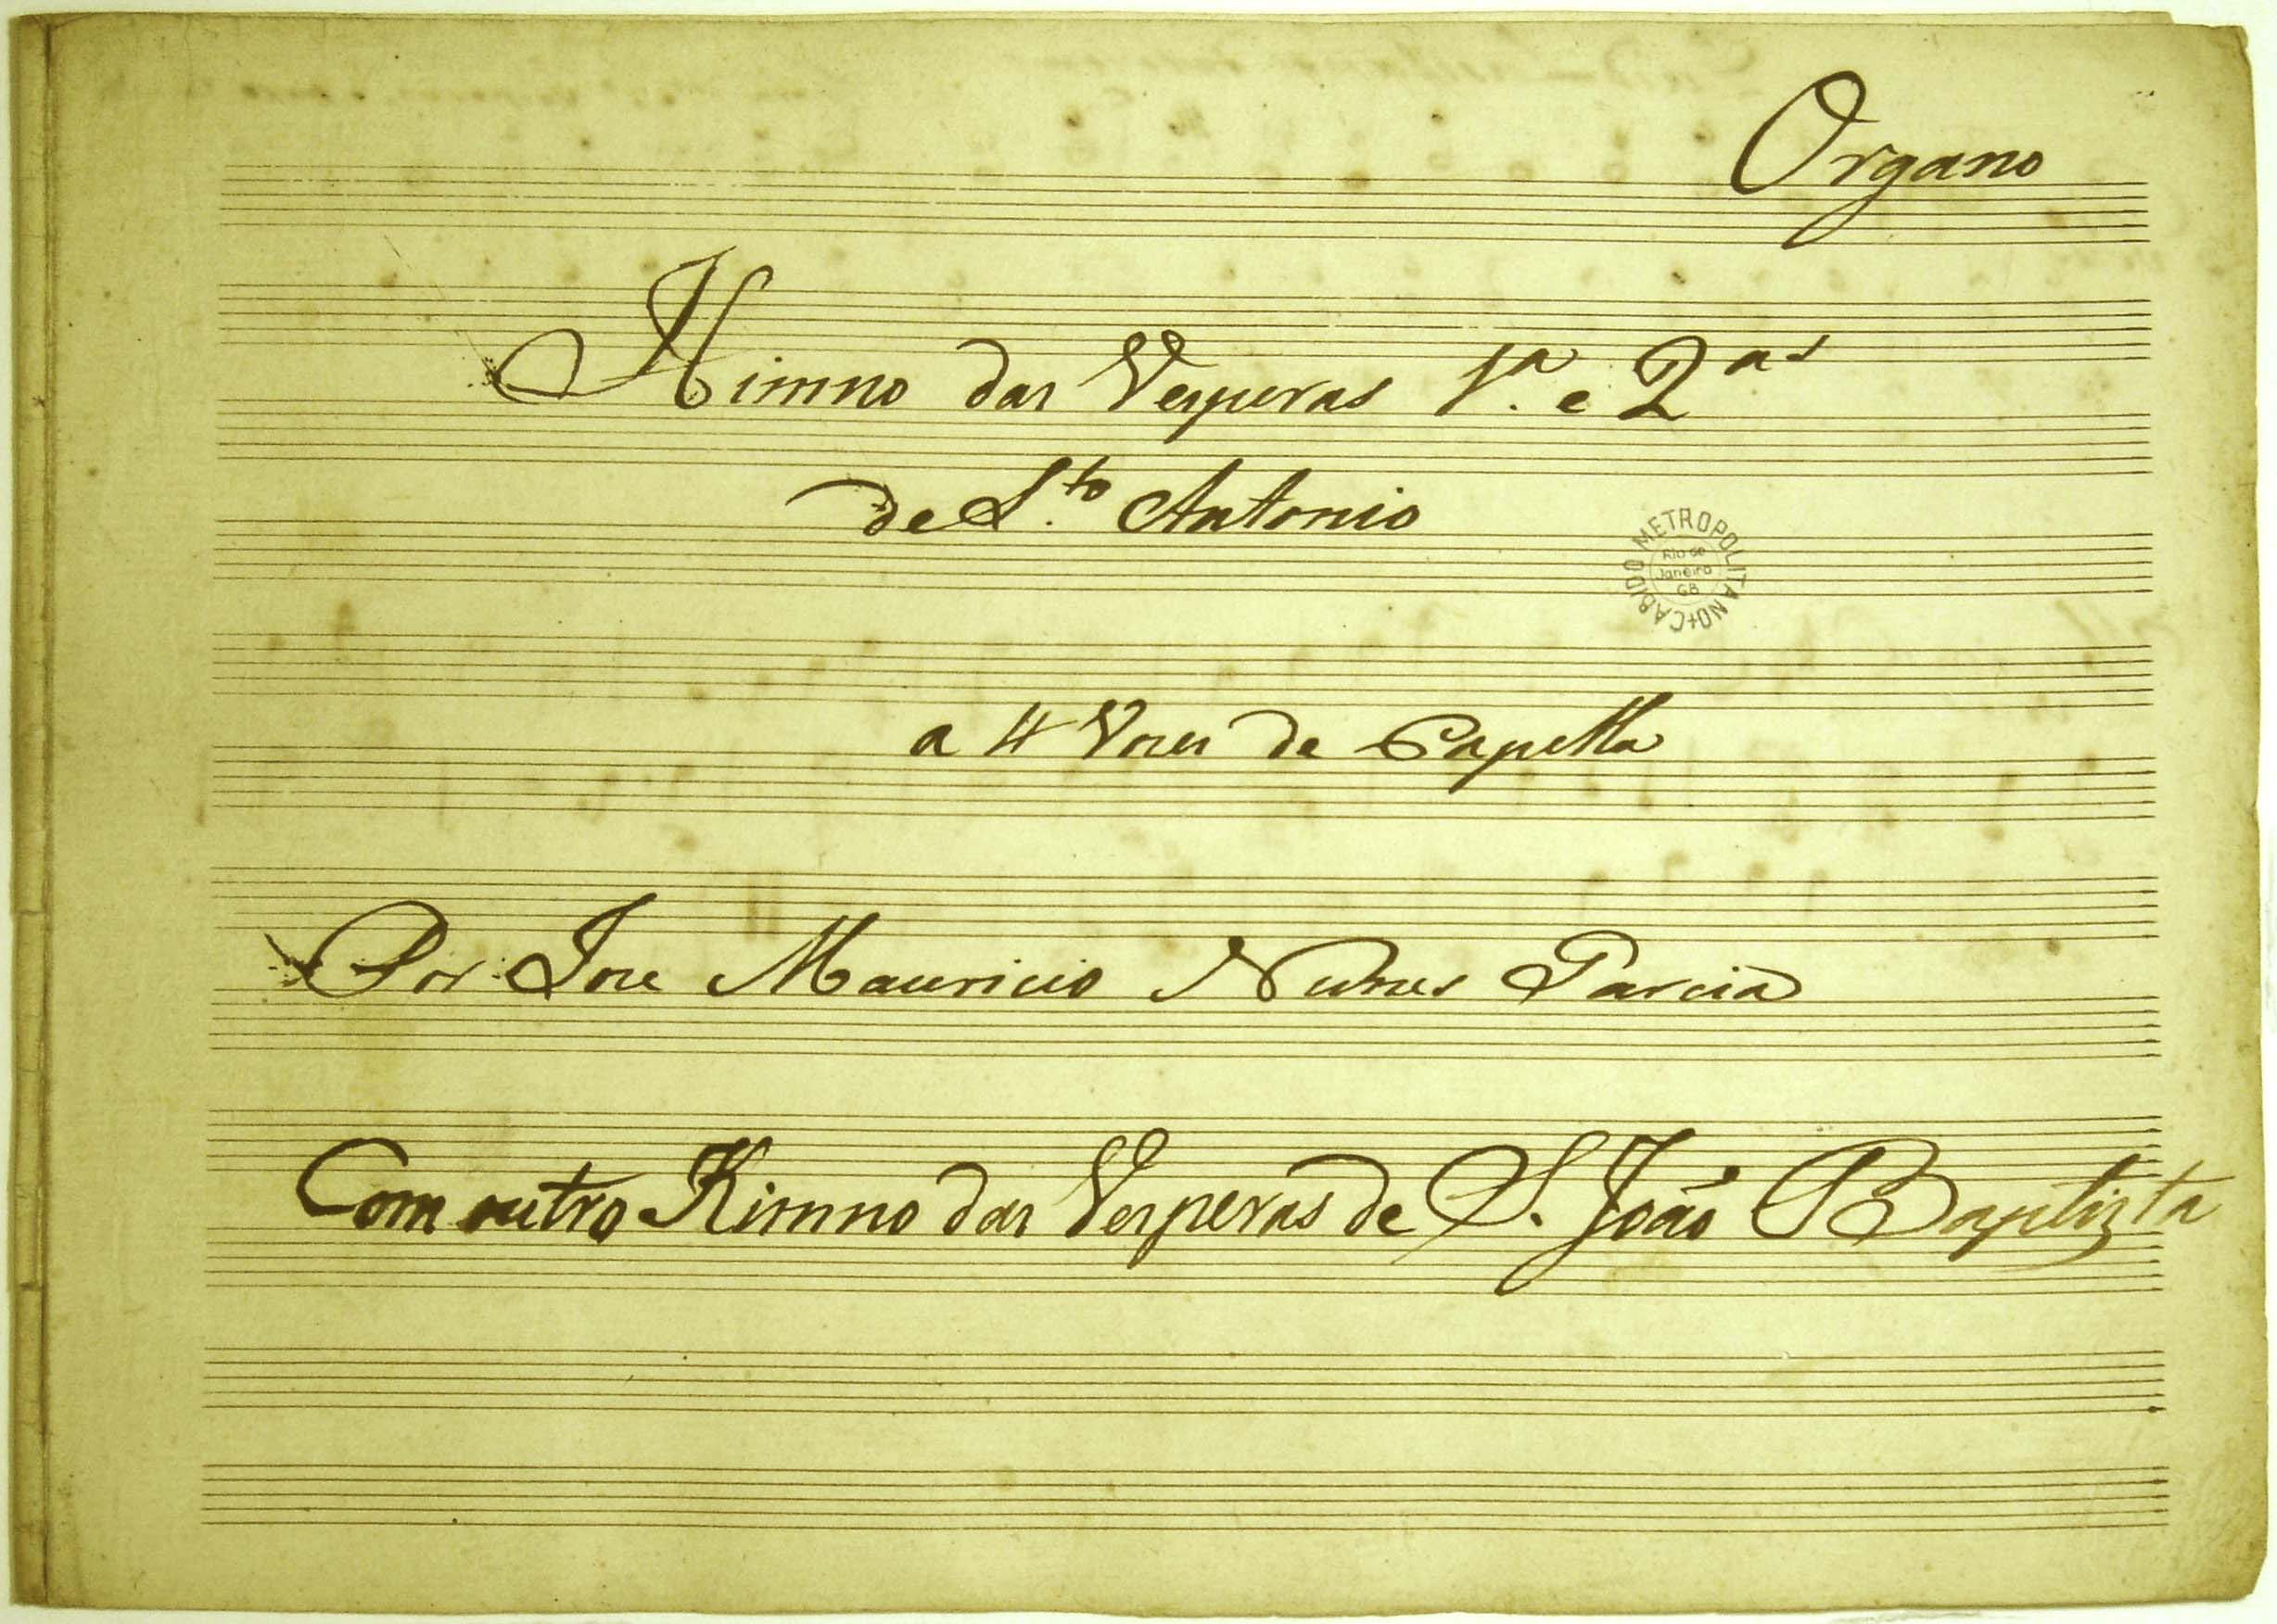 Organo
Himno das Vesperas 1.ª e 2ᵃˢ
de S.ᵗᵒ Antonio
CABIDO METROPOLITANO+
Rio de
Janeiro
GB
a 4 Vozes de Capella
Por Joze Mauricio Nunes Garcia
Com outro Himno das Vesperas de S. João Baptizta